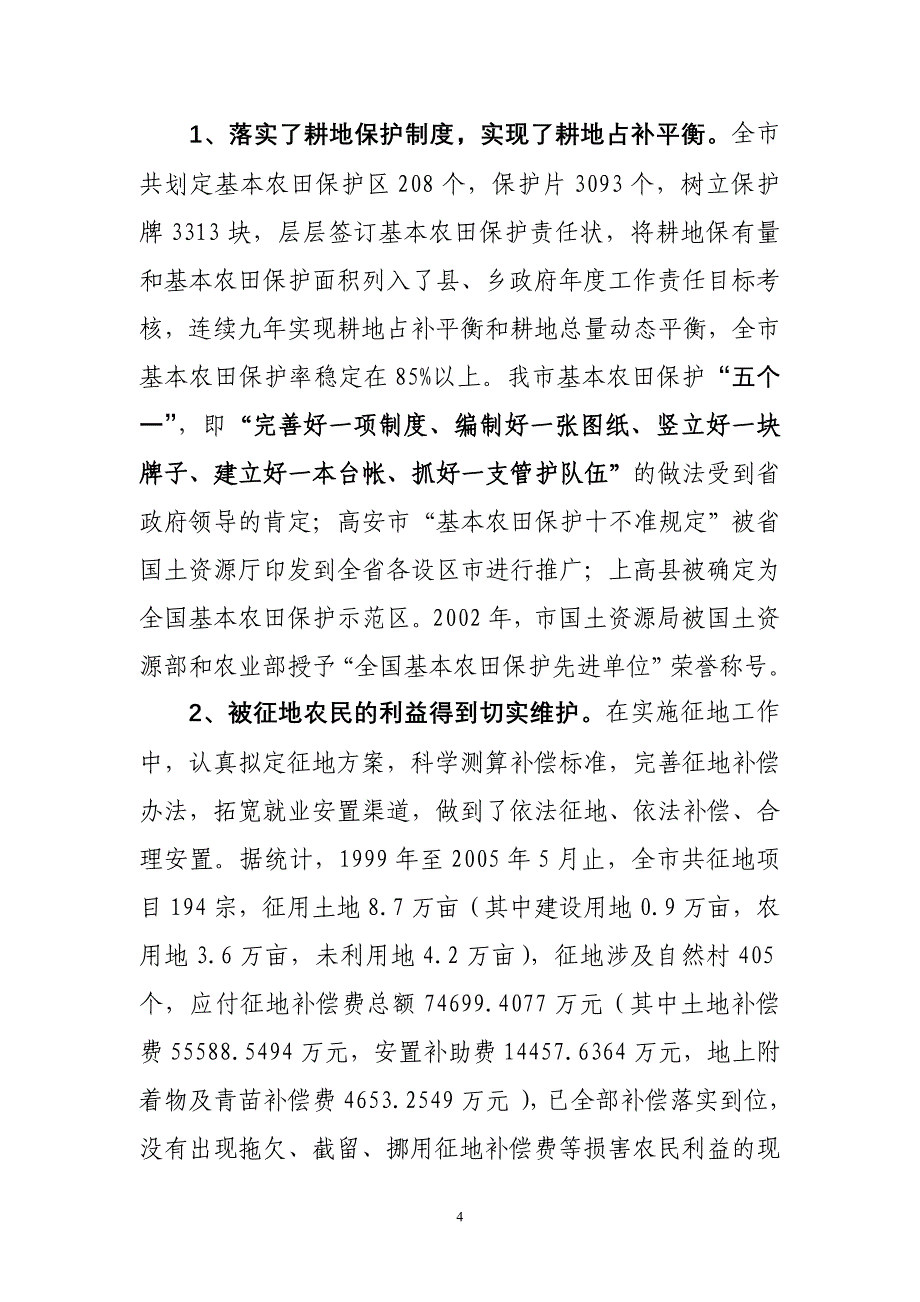 1、落实了耕地保护制度，实现了耕地占补平衡。全市
共划定基本农田保护区 208 个，保护片 3093 个，树立保护
牌 3313 块，层层签订基本农田保护责任状，将耕地保有量
和基本农田保护面积列入了县、乡政府年度工作责任目标考
核，连续九年实现耕地占补平衡和耕地总量动态平衡，全市
基本农田保护率稳定在 85%以上。我市基本农田保护“五个
一”，即“完善好一项制度、编制好一张图纸、竖立好一块
牌子、建立好一本台帐、抓好一支管护队伍”的做法受到省
政府领导的肯定；高安市“基本农田保护十不准规定”被省
国土资源厅印发到全省各设区市进行推广；上高县被确定为
全国基本农田保护示范区。2002 年，市国土资源局被国土资
源部和农业部授予“全国基本农田保护先进单位”荣誉称号。
2、被征地农民的利益得到切实维护。在实施征地工作
中，认真拟定征地方案，科学测算补偿标准，完善征地补偿
办法，拓宽就业安置渠道，做到了依法征地、依法补偿、合
理安置。据统计，1999 年至 2005 年 5 月止，全市共征地项
目 194 宗，征用土地 8.7 万亩（其中建设用地 0.9 万亩，农
用地 3.6 万亩，未利用地 4.2 万亩），征地涉及自然村 405
个，应付征地补偿费总额 74699.4077 万元（其中土地补偿
费 55588.5494 万元，安置补助费 14457.6364 万元，地上附
着物及青苗补偿费 4653.2549 万元），已全部补偿落实到位，
没有出现拖欠、截留、挪用征地补偿费等损害农民利益的现
4